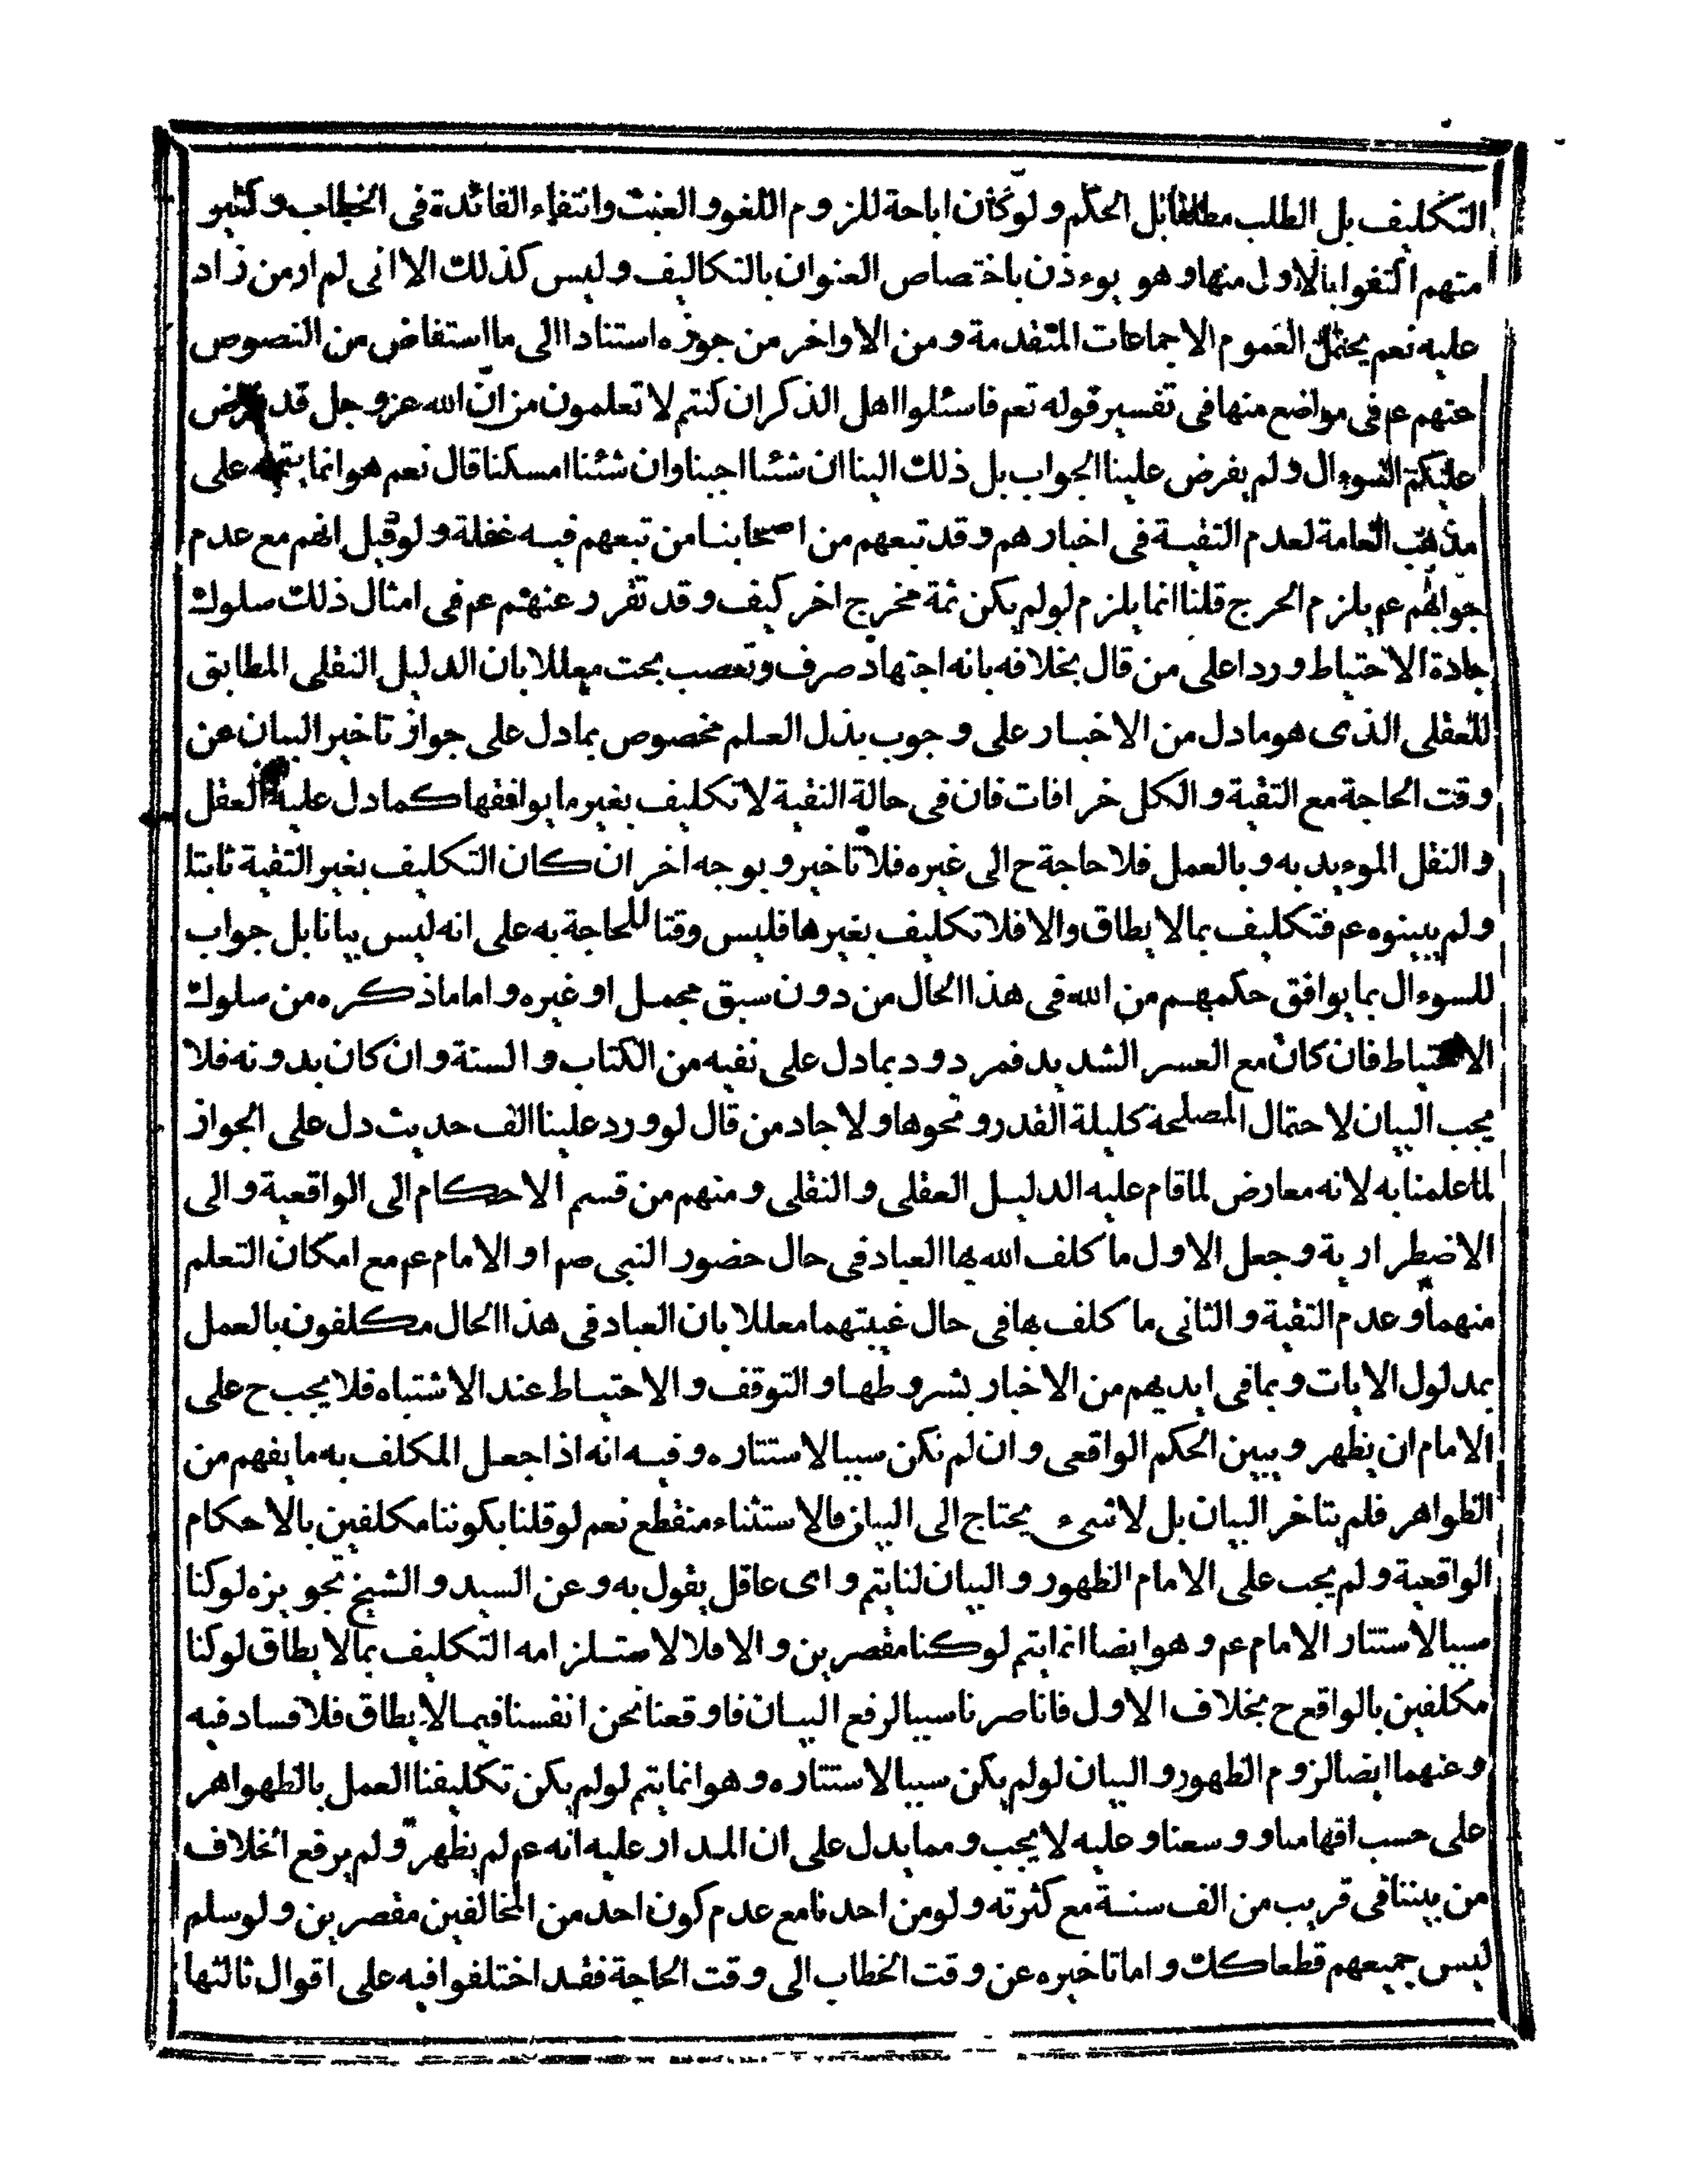 التكليف بل الطلب مطلقا بل الحكم ولو كان اباحة للزوم اللغو والعبث وانتفاء الفائدة في الخطاب وكثير
منهم اكتفوا بالاول منها وهو يوءذن باختصاص العنوان بالتكاليف وليس كذلك الا انى لم ار من زاد
عليه نعم يحتمل العموم الاجماعات المتقدمة ومن الاواخر من جوزه استنادا الى ما استفاض من النصوص
عنهم عم في مواضع منها في تفسير قوله تعم فاسئلوا اهل الذكر ان كنتم لا تعلمون من ان الله عز وجل قد فرض
عليكم السوءال ولم يفرض علينا الجواب بل ذلك الينا ان شئنا اجبنا وان شئنا امسكنا قال نعم هو انما يتم على
مذهب العامة لعدم التقية في اخبارهم وقد تبعهم من اصحابنا من تبعهم فيه غفلة ولو قيل انهم مع عدم
جوابهم عم يلزم الحرج قلنا انما يلزم لو لم يكن ثمة مخرج اخر كيف وقد تقرر عنهم عم في امثال ذلك سلوك
جادة الاحتياط وردا على من قال بخلافه بانه اجتهاد صرف وتعصب بحت معللا بان الدليل النقلى المطابق
للعقلى الذى هو ما دل من الاخبار على وجوب بذل العلم مخصوص بما دل على جواز تاخير البيان عن
وقت الحاجة مع التقية والكل خرافات فان في حالة التقية لا تكليف بغير ما يوافقها كما دل عليه العقل
والنقل الموءيد به وبالعمل فلا حاجة ح الى غيره فلا تاخير وبوجه اخر ان كان التكليف بغير التقية ثابتا
ولم يبينوه عم فتكليف بما لا يطاق والا فلا تكليف بغيرها فليس وقتا للحاجة به على انه ليس بيانا بل جواب
للسوءال بما يوافق حكمهم من الله في هذا الحال من دون سبق مجمل او غيره واما ما ذكره من سلوك
الاحتياط فان كان مع العسر الشديد فمردود بما دل على نفيه من الكتاب والسنة وان كان بدونه فلا
يجب البيان لاحتمال المصلحة كليلة القدر ونحوها ولا جاد من قال لو ورد علينا الف حديث دل على الجواز
لما علمنا به لانه معارض لما قام عليه الدليل العقلى والنقلى ومنهم من قسم الاحكام الى الواقعية والى
الاضطرارية وجعل الاول ما كلف الله بها العباد في حال حضور النبى صم او الامام عم مع امكان التعلم
منهما وعدم التقية والثانى ما كلف بها في حال غيبتهما معللا بان العباد في هذا الحال مكلفون بالعمل
بمدلول الايات وبما في ايديهم من الاخبار بشروطها والتوقف والاحتياط عند الاشتباه فلا يجب ح على
الامام ان يظهر ويبين الحكم الواقعى وان لم نكن سببا لاستتاره وفيه انه اذا جعل المكلف به ما يفهم من
الظواهر فلم يتاخر البيان بل لا شىء يحتاج الى البيان فالاستثناء منقطع نعم لو قلنا بكوننا مكلفين بالاحكام
الواقعية ولم يجب على الامام الظهور والبيان لنا يتم واى عاقل يقول به وعن السيد والشيخ تجويزه لو كنا
سببا لاستتار الامام عم وهو ايضا انما يتم لو كنا مقصرين والا فلا لاستلزامه التكليف بما لا يطاق لو كنا
مكلفين بالواقع ح بخلاف الاول فانا صرنا سببا لرفع البيان فاوقعنا نحن انفسنا فيما لا يطاق فلا فساد فيه
وعنهما ايضا لزوم الظهور والبيان لو لم يكن سببا لاستتاره وهو انما يتم لو لم يكن تكليفنا العمل بالظهواهر
على حسب افهامنا ووسعنا وعليه لا يجب ومما يدل على ان المدار عليه انه عم لم يظهر ولم يرفع الخلاف
من بيننا في قريب من الف سنة مع كثرته ولو من احدنا مع عدم كون احد من المخالفين مقصرين ولو سلم
ليس جميعهم قطعا كك واما تاخيره عن وقت الخطاب الى وقت الحاجة فقد اختلفوا فيه على اقوال ثالثها